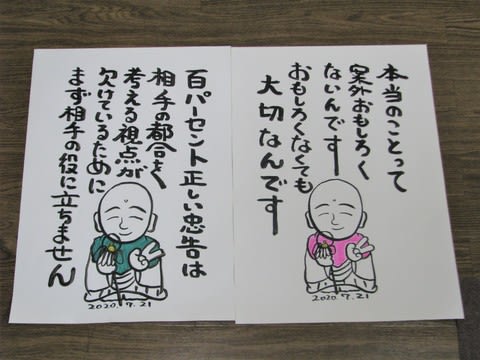 百パーセント正しい忠告は
相手の都合を
考える視点が
欠けているために
まず相手の役に立ちません
2020.9.21
本当のことって
案外おもしろく
ないんです
おもしろくなくても
大切なんです
2020.9.21